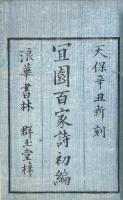 天保辛丑新刻
宜園百家詩初編
浪華書林 群玉堂梓